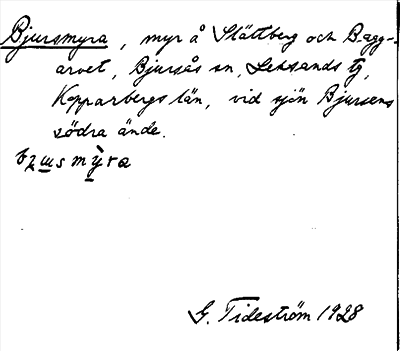 Bjursmyra, myr å Slättberg och Bagg-
arvet, Bjursås sn, Leksands tg,
Kopparbergs län, vid sjön Bjursens
södra ände.
G. Tideström 1928